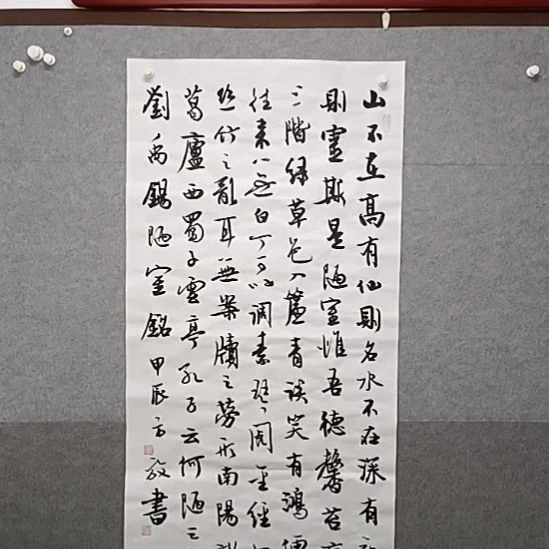 山不在高有仙則名水不在深有
則靈斯是陋室惟吾德馨苔
上階綠草色入簾青談笑有鴻儒
往來無白丁可以調素琴閱金經
絲竹之亂耳無案牘之勞形南陽諸
葛廬西蜀子雲亭孔子云何陋之
劉禹錫陋室銘 甲辰方書